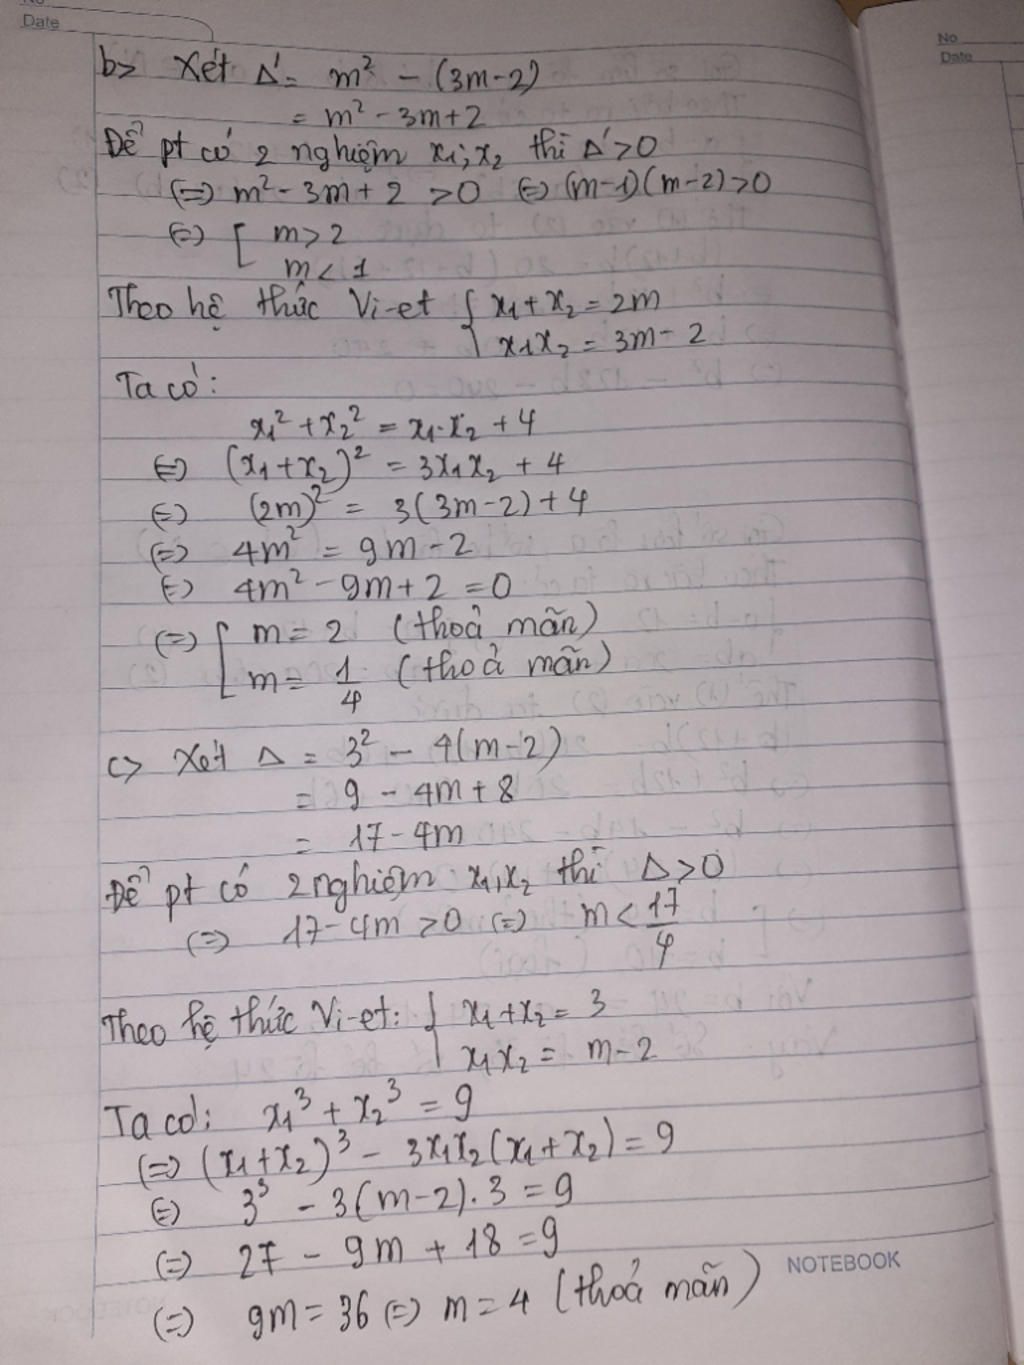 No
Date
No
Date
b> Xét Δ' = m² - (3m-2)
= m² - 3m+2
Để pt có 2 nghiệm x₁; x₂ thì Δ'>0
(=) m² - 3m + 2 >0 (=) (m-1)(m-2)>0
(=) [ m> 2
m < 1
Theo hệ thức Vi-et { x₁ + x₂ = 2m
x₁x₂ = 3m - 2
Ta có:
x₁² + x₂² = x₁.x₂ + 4
(=) (x₁+x₂)² = 3x₁x₂ + 4
(=) (2m)² = 3(3m-2)+4
(=) 4m² = 9m - 2
(=) 4m² - 9m + 2 = 0
(=) [ m = 2 (thoả mãn)
m = 1/4 (thoả mãn)
c> Xét Δ = 3² - 4(m-2)
= 9 - 4m + 8
= 17 - 4m
Để pt có 2 nghiệm x₁, x₂ thì Δ>0
(=) 17-4m >0 (=) m < 17/4
Theo hệ thức Vi-et: { x₁ + x₂ = 3
x₁x₂ = m-2
Ta có: x₁³ + x₂³ = 9
(=) (x₁+x₂)³ - 3x₁x₂(x₁+x₂) = 9
(=) 3³ - 3(m-2).3 = 9
(=) 27 - 9m + 18 = 9
(=) 9m = 36 (=) m = 4 (thoả mãn)
NOTEBOOK